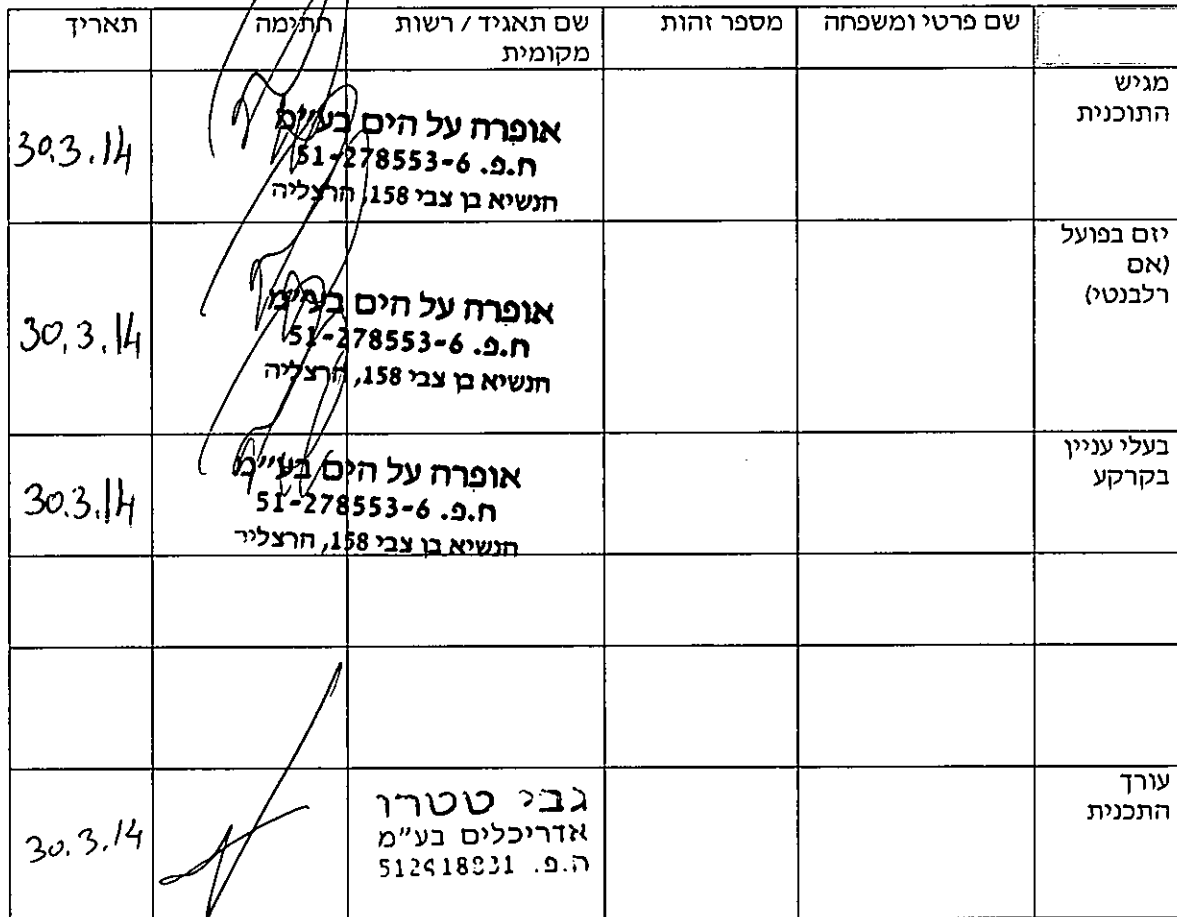 שם פרטי ומשפחה מספר זהות שם תאגיד / רשות מקומית חתימה תאריך
מגיש התוכנית
אופרה על הים בע"מ
ח.פ. 51-278553-6
הנשיא בן צבי 158, הרצליה
30.3.14
יזם בפועל (אם רלבנטי)
אופרה על הים בע"מ
ח.פ. 51-278553-6
הנשיא בן צבי 158, הרצליה
30.3.14
בעלי עניין בקרקע
אופרה על הים בע"מ
ח.פ. 51-278553-6
הנשיא בן צבי 158, הרצליה
30.3.14
עורך התכנית
גבי טטרו
אדריכלים בע"מ
ח.פ.
30.3.14